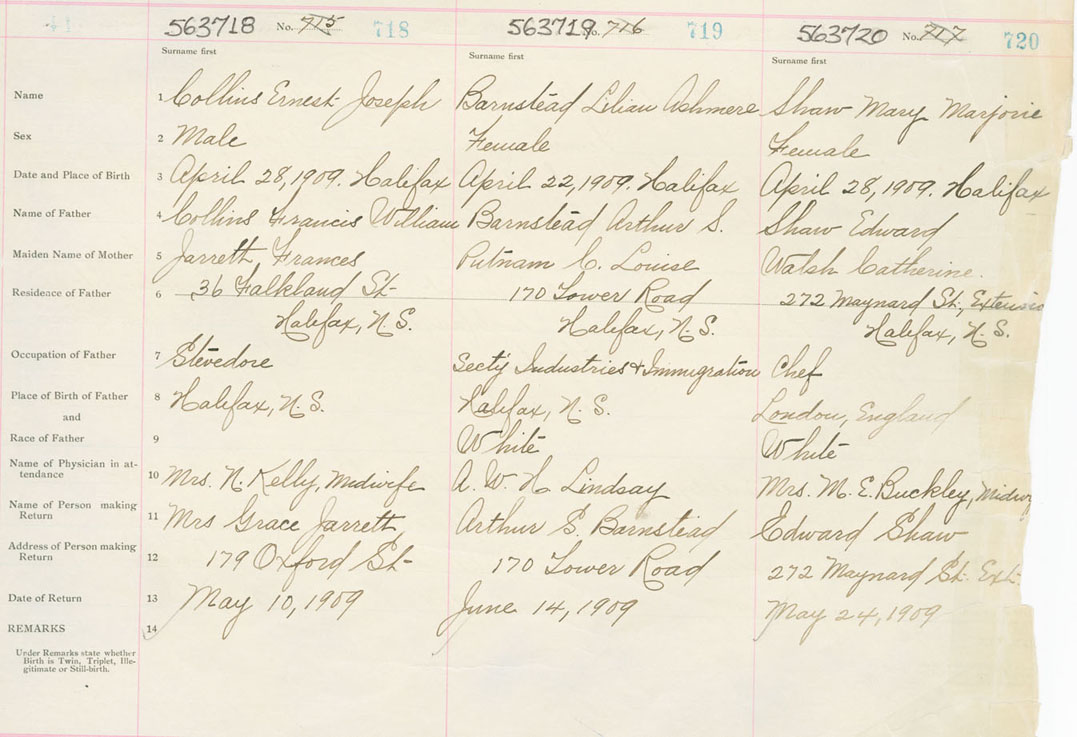 563718 No. 715 718 563719 No. 716 719 563720 No. 717 720
Surname first Surname first Surname first
Name 1 Collins Ernest Joseph Barnstead Lilian Ashmere Shaw Mary Marjorie
Sex 2 Male Female Female
Date and Place of Birth 3 April 28, 1909. Halifax April 22, 1909. Halifax April 28, 1909. Halifax
Name of Father 4 Collins Francis William Barnstead Arthur S. Shaw Edward
Maiden Name of Mother 5 Jarreth Frances Putnam C. Louise Walsh Catherine.
Residence of Father 6 36 Falkland St- 170 Tower Road 272 Maynard St., Extensio
Halifax, N.S. Halifax, N.S. Halifax, N.S.
Occupation of Father 7 Stevedore Secty Industries & Immigration Chef
Place of Birth of Father 8 Halifax, N.S. Halifax, N.S. London, England
and
Race of Father 9 White White
Name of Physician in at-
tendance 10 Mrs. N. Kelly, Midwife A. W. H. Lindsay Mrs. M. E. Buckley, Midw
Name of Person making
Return 11 Mrs Grace Jarrett Arthur S. Barnstead Edward Shaw
Address of Person making
Return 12 179 Oxford St- 170 Tower Road 272 Maynard St. Ext.
Date of Return 13 May 10, 1909 June 14, 1909 May 24, 1909
REMARKS 14
Under Remarks state whether
Birth is Twin, Triplet, Ille-
gitimate or Still-birth.